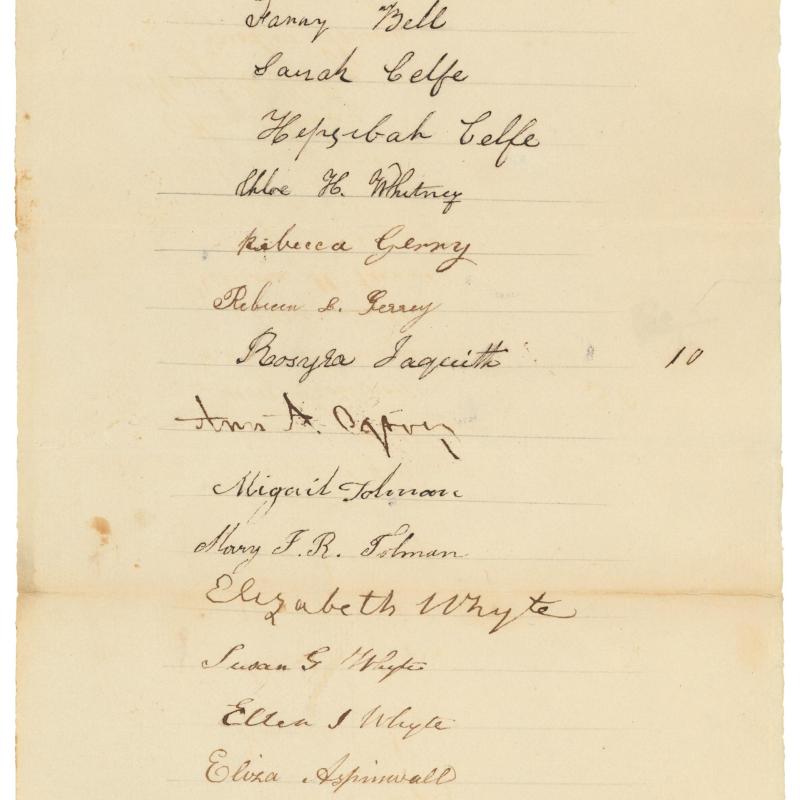 Fanny Bell
Sarah Celfe
Hepzibah Celfe
Chloe H. Whitney
Rebecca Gerry
Rebecca L. Gerrey
Rosyra Jaquith 10
Ann A.
Abigail Tolman
Mary F. R. Tolman
Elizabeth Whyte
Susan G Whyte
Ellen J Whyte
Eliza Aspinwall